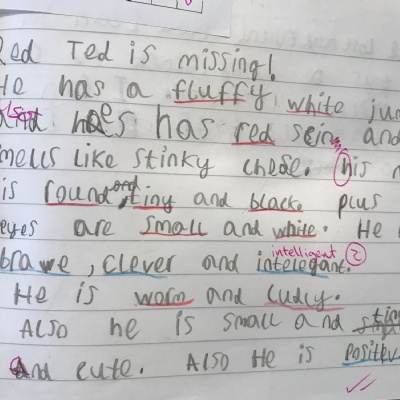 Red Ted is missing!
He has a fluffy white jum
has red scin and
mells like stinky chese. his n
is round and tiny and black. plus
eyes are small and white. He
brawe, clever and intelegant.
intelligent 2
He is worm and cudly.
Also he is small and
And cute. Also He is positev